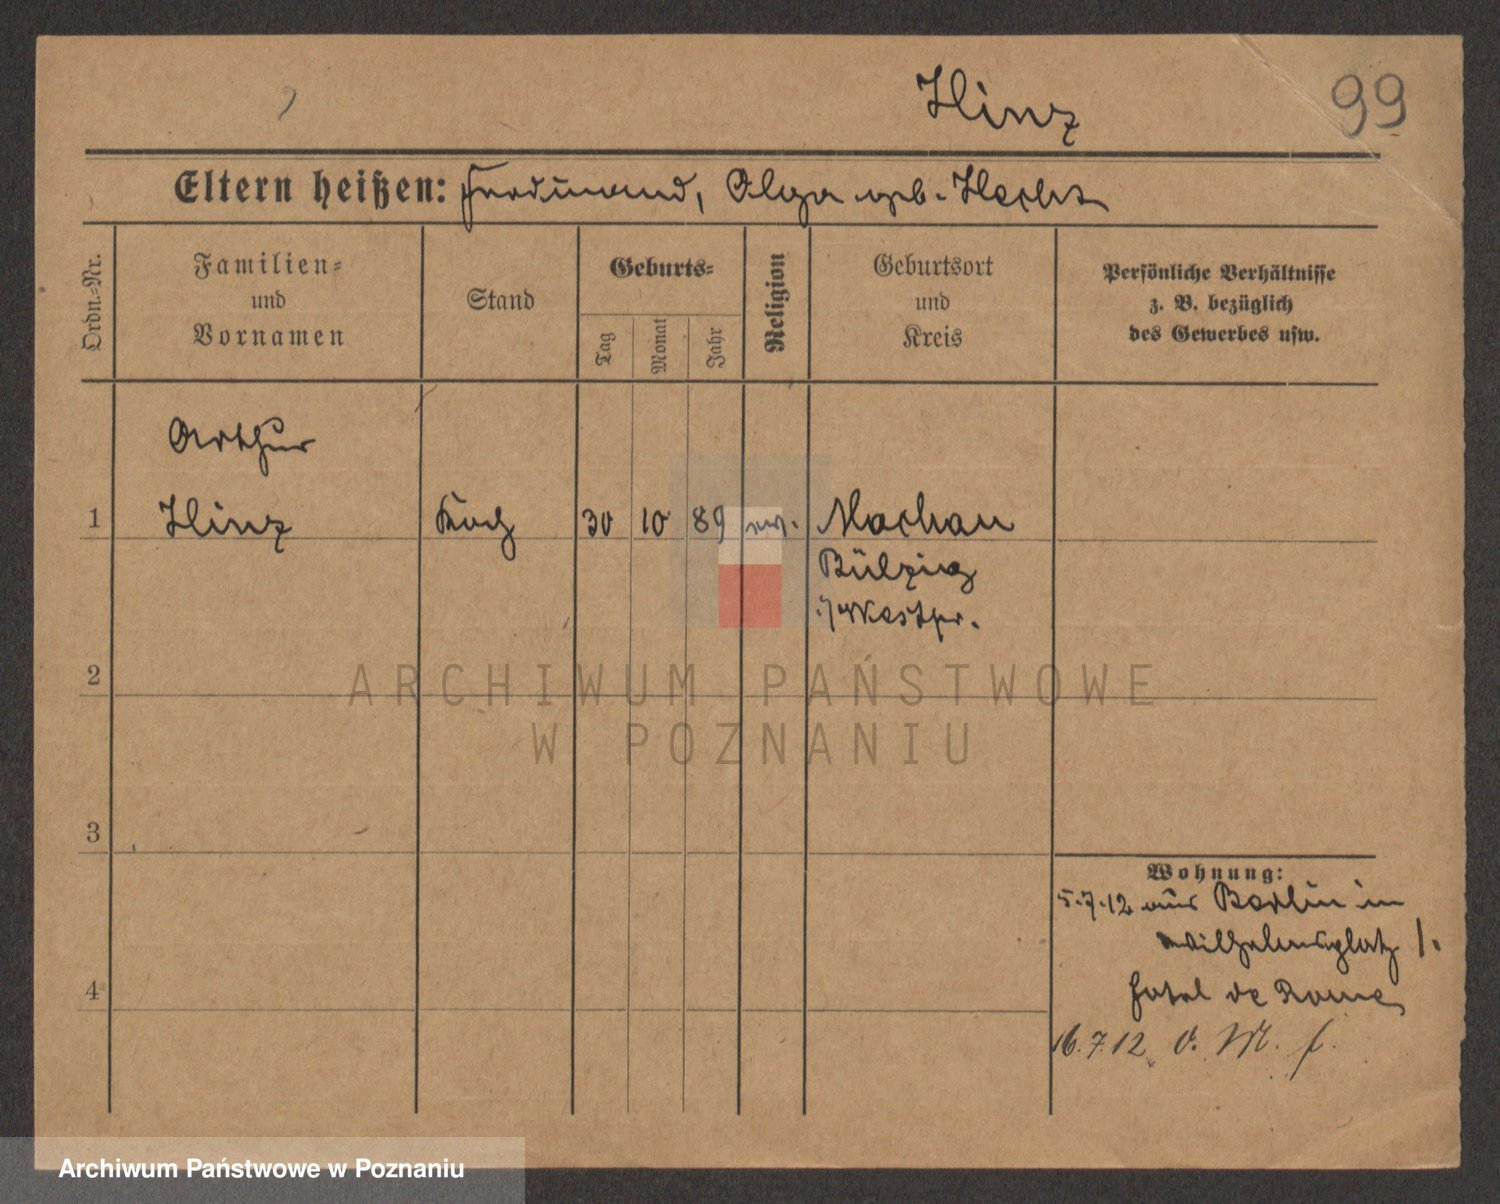 Hinz
99
Eltern heißen: Ferdinand, Olga geb. Hecht
Ordn.=Nr.
Familien=
und
Vornamen
Stand
Geburts=
Tag
Monat
Jahr
Religion
Geburtsort
und
Kreis
Persönliche Verhältnisse
z. B. bezüglich
des Gewerbes usw.
Arthur
1 Hinz Koch 30 10 89 ev. Machau
Bülzig
Westpr.
2
3
4
Wohnung:
5.7.12 aus Berlin in
Wilhelmsplatz 1.
Hotel de Rome
16.7.12 v. M.
ARCHIWUM PAŃSTWOWE
W POZNANIU
Archiwum Państwowe w Poznaniu